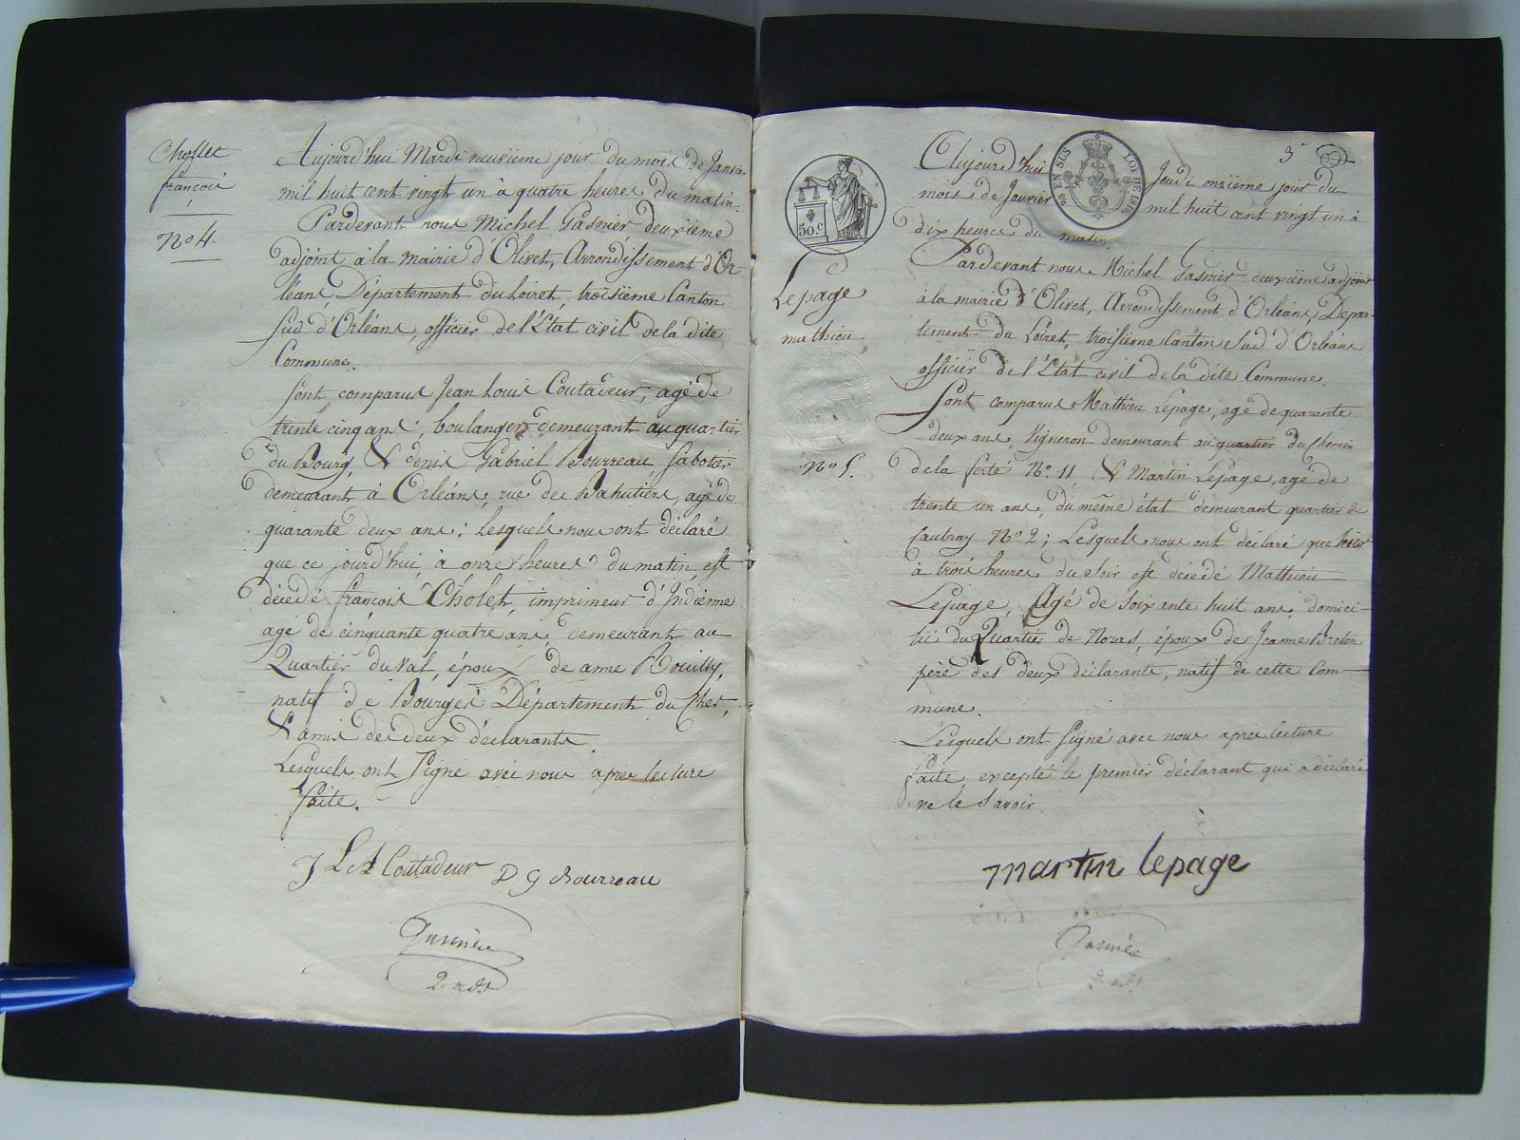 Chollet
françois
No 4.
Aujourd'hui Mardi neuvième jour du mois de Janvr
mil huit cent vingt un à quatre heures du matin.
Pardevant nous Michel Gasnier deuxième
adjoint à la mairie d'Olivet, Arrondissement d'Or-
léans, Département du Loiret, troisième Canton
sud d'Orléans, officier de l'Etat civil de la dite
Commune.
sont comparus Jean Louis Coutadeur, agé de
trente cinq ans, boulanger demeurant au quartier
du Bourg, & denis Gabriel Bourreau, sabotier
demeurant à Orléans, rue des Bahutiers, agé de
quarante deux ans; lesquels nous ont déclaré
que ce jourd'hui, à onze heures du matin, est
décédé françois Cholet, imprimeur d'Indienne
agé de cinquante quatre ans, demeurant au
Quartier du val, époux de anne Bouilly,
natif de Bourges Département du Cher,
& amis des deux déclarants.
Lesquels ont signé avec nous apres lecture
faite.
J L A Coutadeur D G Bourreau
Gasnier
2. adj
3
Aujourd'hui Jeudi onzième jour du
mois de Janvier mil huit cent vingt un à
dix heures du matin.
EN SUS LOI DE 1816
50.c
Lepage
mathieu
No 5.
Pardevant nous Michel Gasnier deuxième adjoint
à la mairie d'Olivet, Arrondissement d'Orléans, Dépar-
tement du Loiret, troisième Canton Sud d'Orléans
officier de l'Etat civil de la dite Commune.
sont comparus Mathieu Lepage, agé de quarante
deux ans, Vigneron demeurant au quartier du chemin
de la ferté No. 11, & Martin Lepage, agé de
trente un ans, du même état demeurant quartier de
Caubray No 2; Lesquels nous ont déclaré que hier
à trois heures du soir est décédé Matthieu
Lepage, Agé de soixante huit ans, domici-
lié du Quartier de Noras, époux de Jeanne Breton
père des deux déclarants, natif de cette Com-
mune.
Lesquels ont signé avec nous apres lecture
faite, excepté le premier déclarant qui a déclaré
ne le savoir.
martin lepage
Gasnier
2. adj